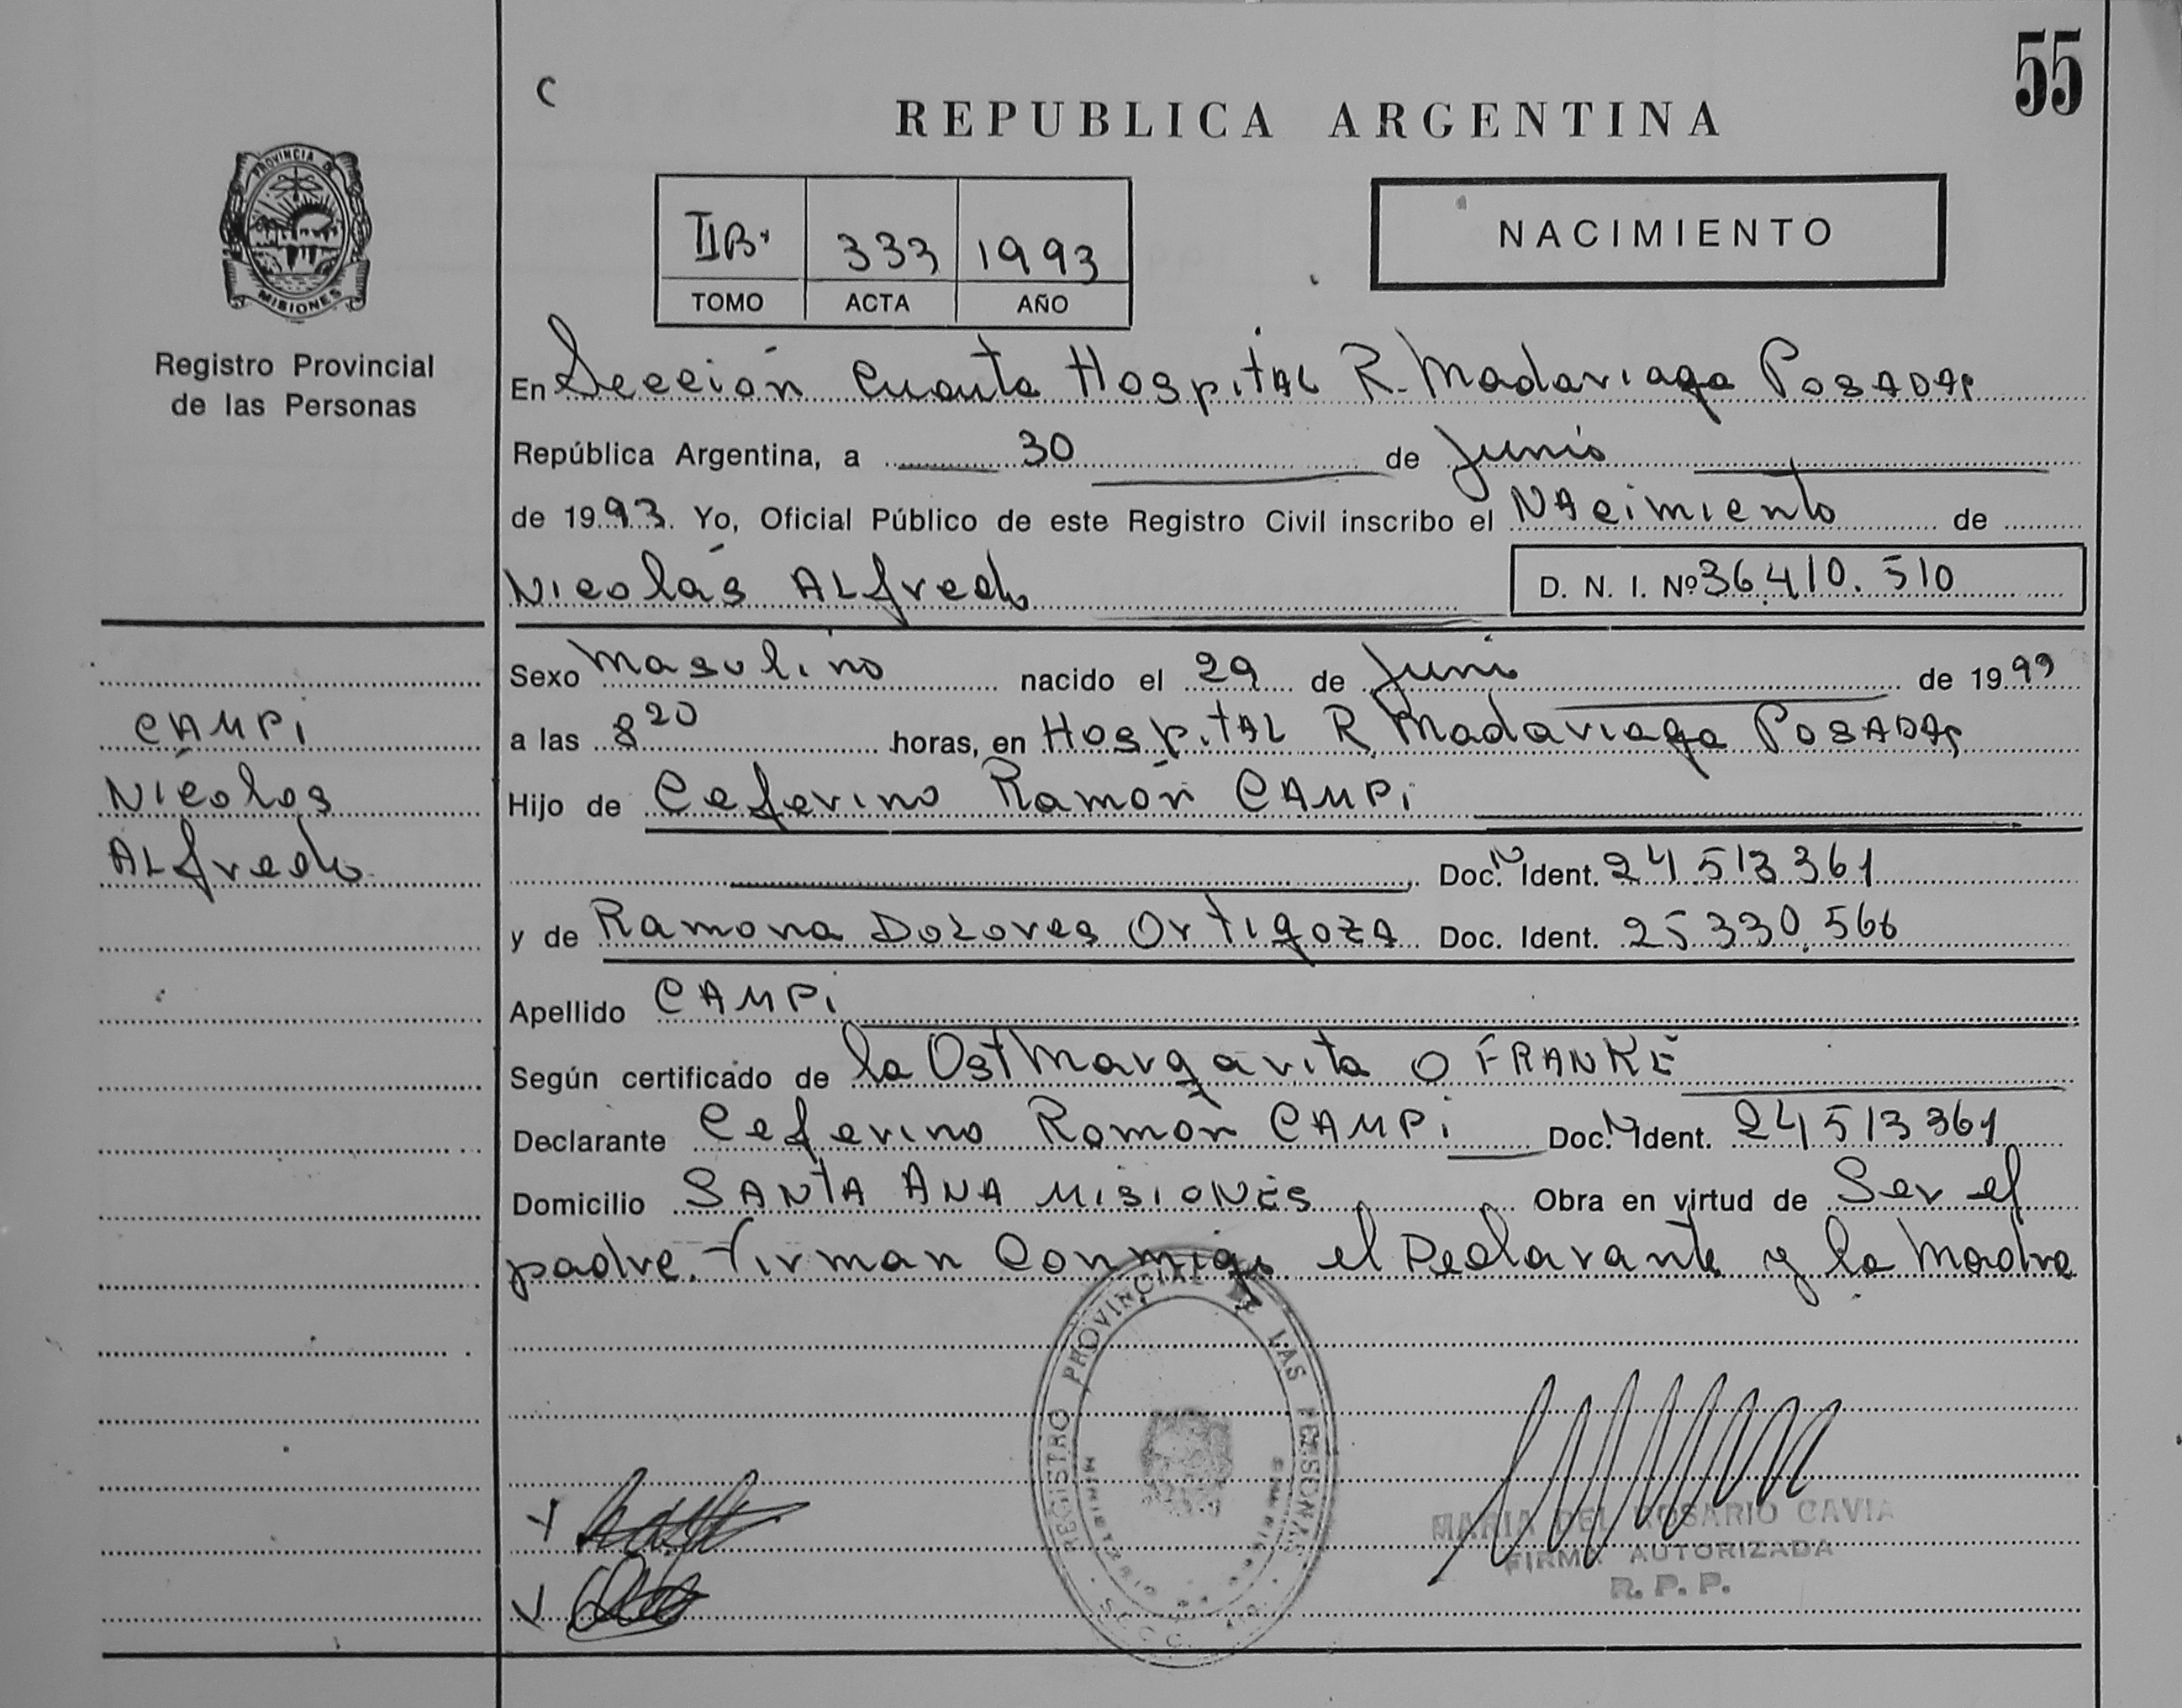 55
C
REPUBLICA ARGENTINA
PROVINCIA DE
MISIONES
Registro Provincial
de las Personas
IIB. 333 1993
TOMO ACTA AÑO
NACIMIENTO
En Sección Cuarta Hospital R. Madariaga Posadas
República Argentina, a 30 de Junio
de 1993. Yo, Oficial Público de este Registro Civil inscribo el NAcimiento de
Nicolás ALfredo D. N. I. Nº 36.410.510
Sexo Masculino nacido el 29 de Junio de 1993
a las 8 20 horas, en HospitAL R. Madariaga PosADAs
Hijo de Ceferino Ramón CAMPi
Doc. N Ident. 24 513 361
y de Ramona Dolores OrtigozA Doc. Ident. 25 330.566
Apellido CAMPi
Según certificado de la Ost Margarita O FRANKE
Declarante Ceferino Ramón CAMPi Doc. N Ident. 24 513 361
Domicilio SANTA ANA MISIONES Obra en virtud de Ser el
padre. Firman Conmigo el Declarante y la Madre
CAMPi
Nicolas
ALfredo
REGISTRO PROVINCIAL DE LAS PERSONAS
MINISTERIO
MARIA DEL ROSARIO CAVIA
FIRMA AUTORIZADA
R. P. P.